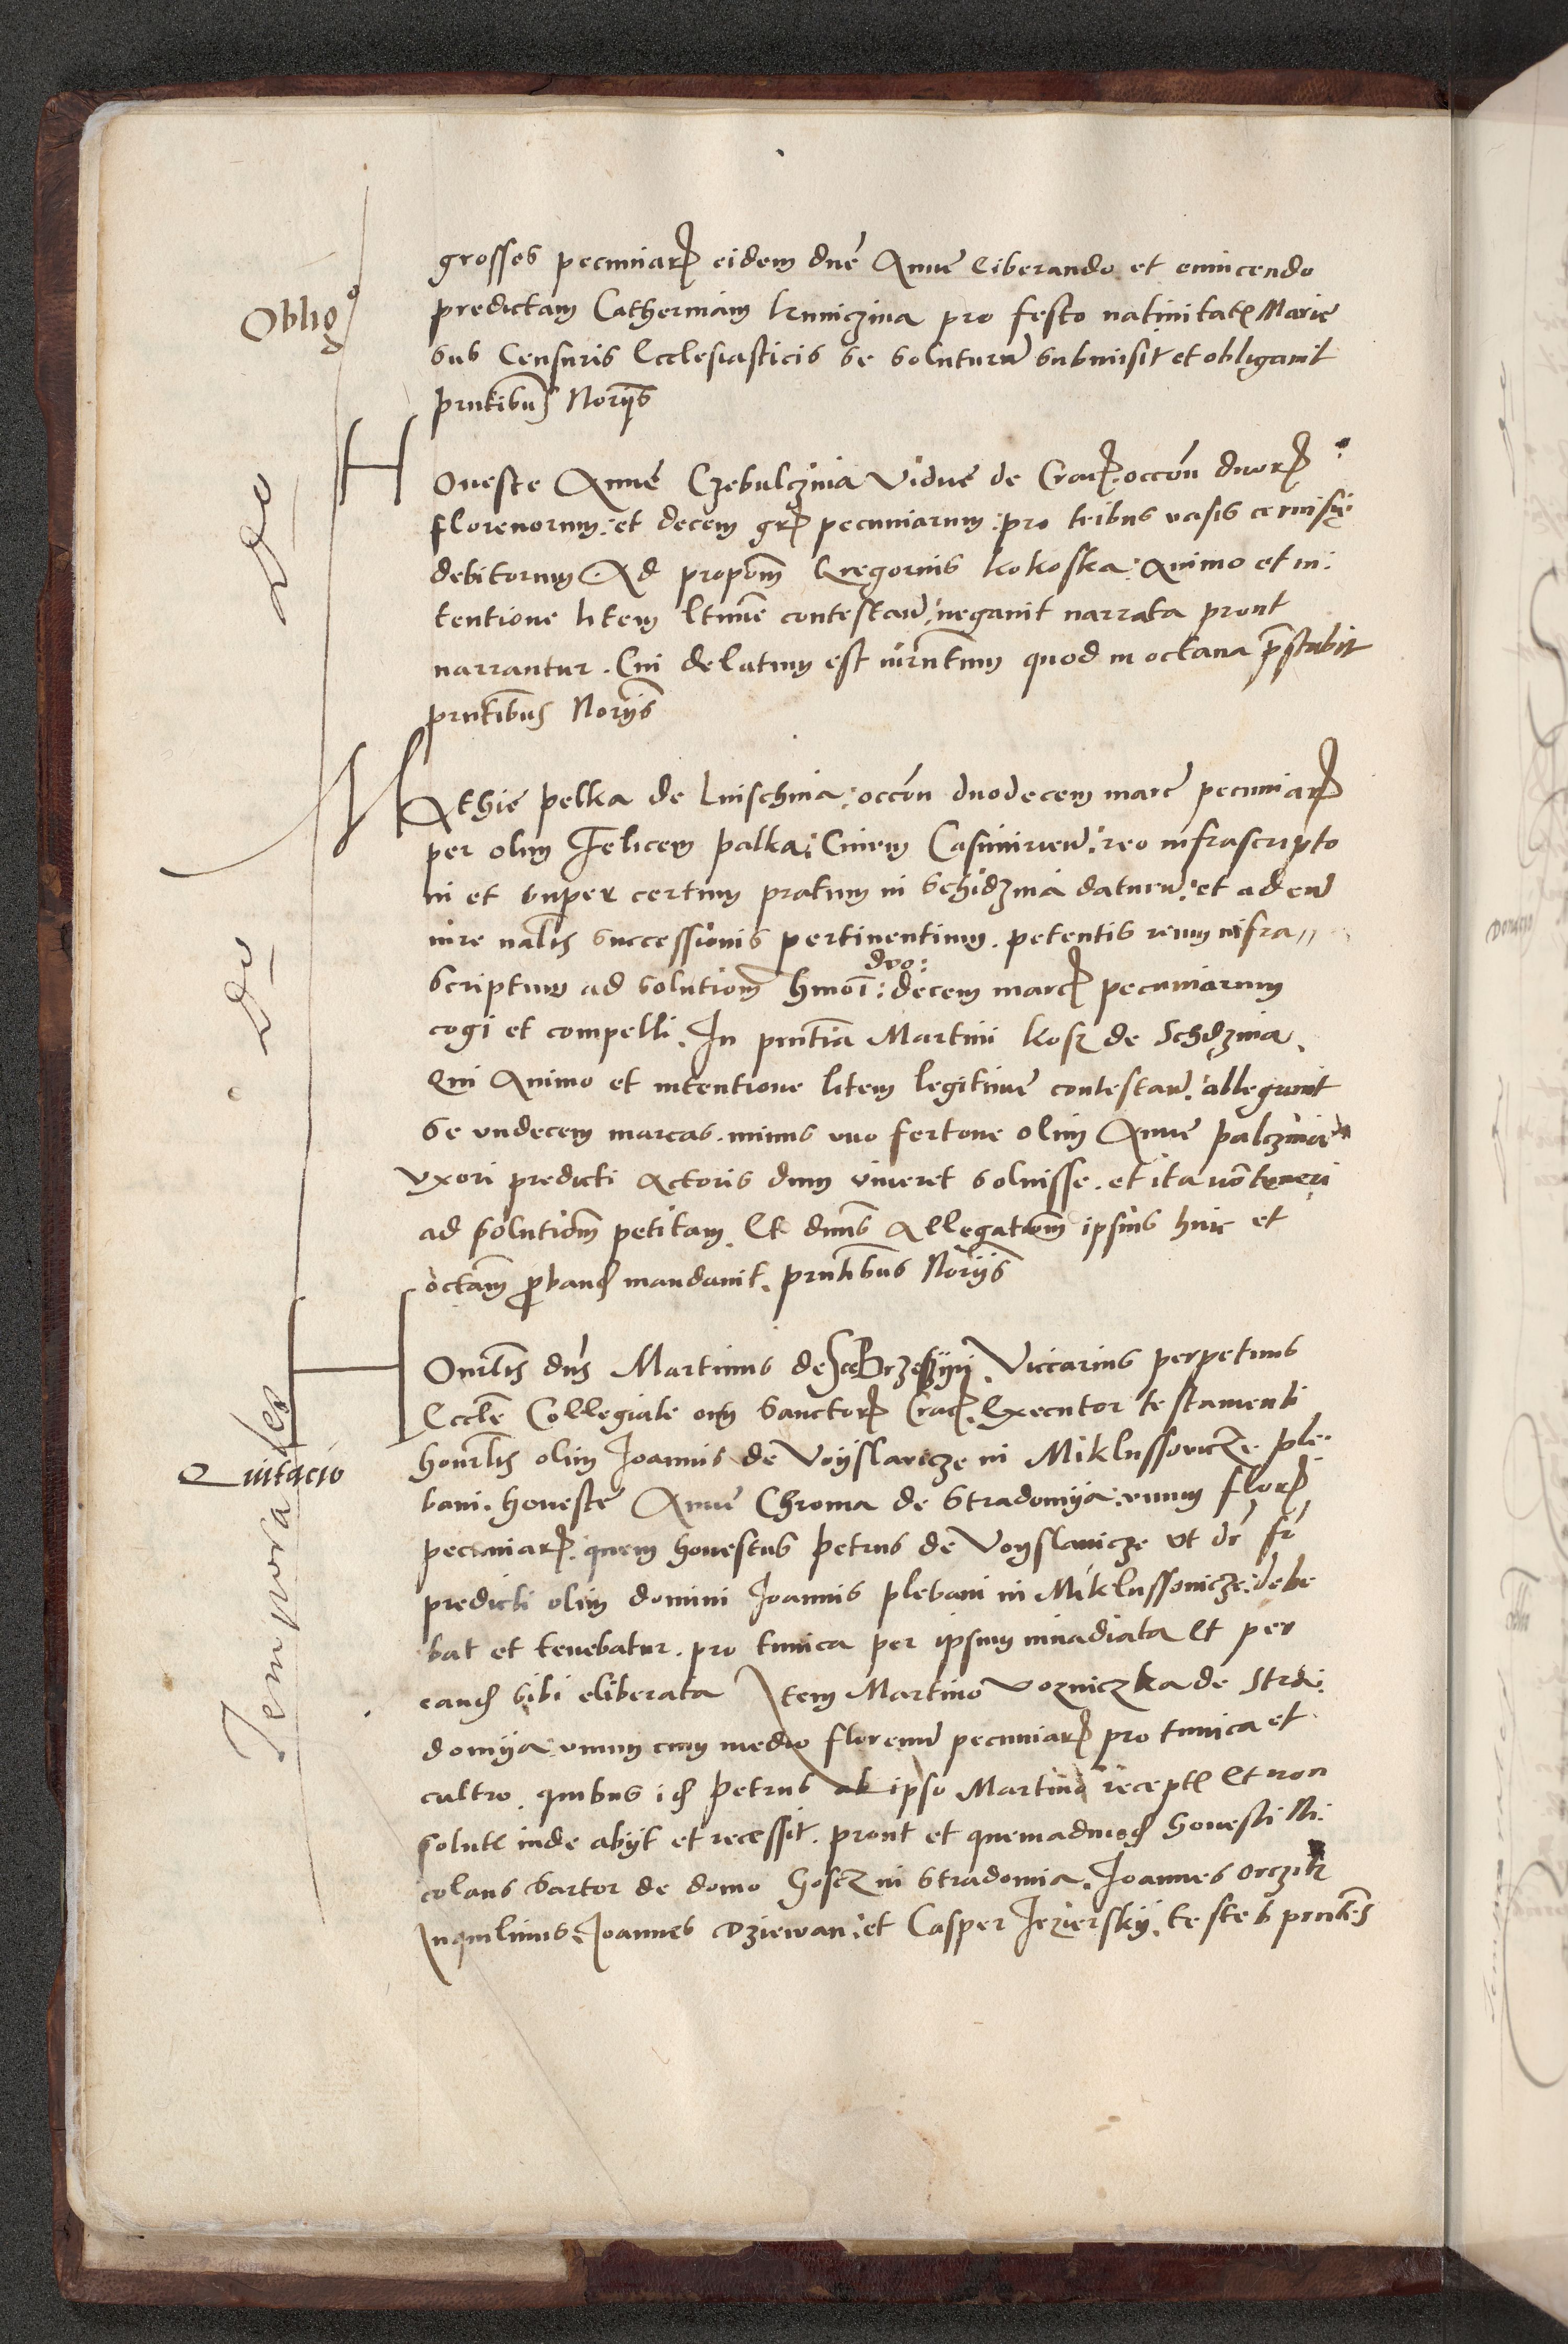 grosses pecuniarꝝ eidem dne Anne liberando et emincendo
Obligo
predictam Catherinam kruniczina pro festo natiuitatꝭ Marie
sub Censuris Ecclesiasticis se soluturū submisit et obligauit
pntibus Norijs
Honeste Anne Czebulczina Vidue de Cracꝫ occōn duorꝝ
florenorum: et decem grꝫ pecuniarum: pro tribus vasis ceruisie
debitorum. Ad propōm Gregorius kokoska: Animo et in:
tentione litem ltime contestanꝫ: negauit narrata prout
narrantur. Cui delatum est iurntum quod in octaua prestabit
pntibus Norijs
Mathie pelka de Luischina: occōn duodecem marc pecuniarꝝ
per olim Felicem palka: Ciuem Casimirien: reo infrascripto
in et super certum pratum in Schidzina daturū: et ad eū
iure nalis successionis pertinentium. petentis reum infra
duo:
scriptum ad solutionē hmoi: decem marcꝝ pecuniarum
cogi et compelli. In pntia Martini kosz de Schdzina.
Qui Animo et intentione litem legitime contestanꝫ. allegauit
se vndecem marcas. minus vno fertone olim Anne palczine
vxori predicti Actoris dum viueret soluisse. et ita nō teneri
ad solutiōm petitam. Et dnus Allegatiōm ipsius hinc et
octam probandꝫ mandauit. pntibus Norijs
Honrlis dns Martinus de Brzeszyny. Viccarius perpetuus
Eccle Collegiate oim Sanctorꝝ Cracꝫ. Executor testamenti
Quitacio
honrlis olim Joannis de Voyslavicze in Miklussovicze ple:
bani. honeste Anne Chroma de Stradomya: vnum florꝫ
pecuniarꝝ. quem honestus petrus de Voyslauicze vt dr fr
predicti olim domini Joannis plebani in Miklussouicze: debe
bat et tenebatur. pro tunica per ipsum inuadiata Et per
eandꝫ sibi eliberata Item Martino vozniczka de Stra:
domya: vnum cum medio florenū pecuniarꝝ pro tunica et
cultro. quibus idꝫ Petrus ab ipso Martino receptꝭ Et non
solutꝭ inde abyt et recessit. prout et quemadmodꝫ honesti Ni:
colaus Sartor de domo hoscz in Stradomia. Joannes
Inquilinus: Joannes Dziewan: et Casper Jeziersky. testes pntes
Do
Do
Temporales